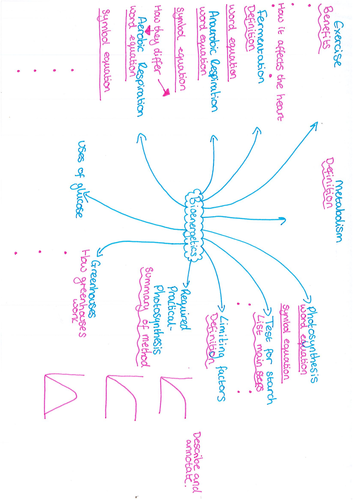 Bioenergetics
Exercise
Benefits
How it affects the heart
Fermentation
Definition
word equation
Anaerobic Respiration
word equation
symbol equation
How they differ
Aerobic Respiration
word equation
Symbol equation
Uses of glucose
Metabolism
Definition
Photosynthesis
word equation
symbol equation
Test for starch
List main steps
Limiting factors
Definition
Required
Practical-
Photosynthesis
Summary of method
Greenhouses
How greenhouses
work
Describe and
annotate.